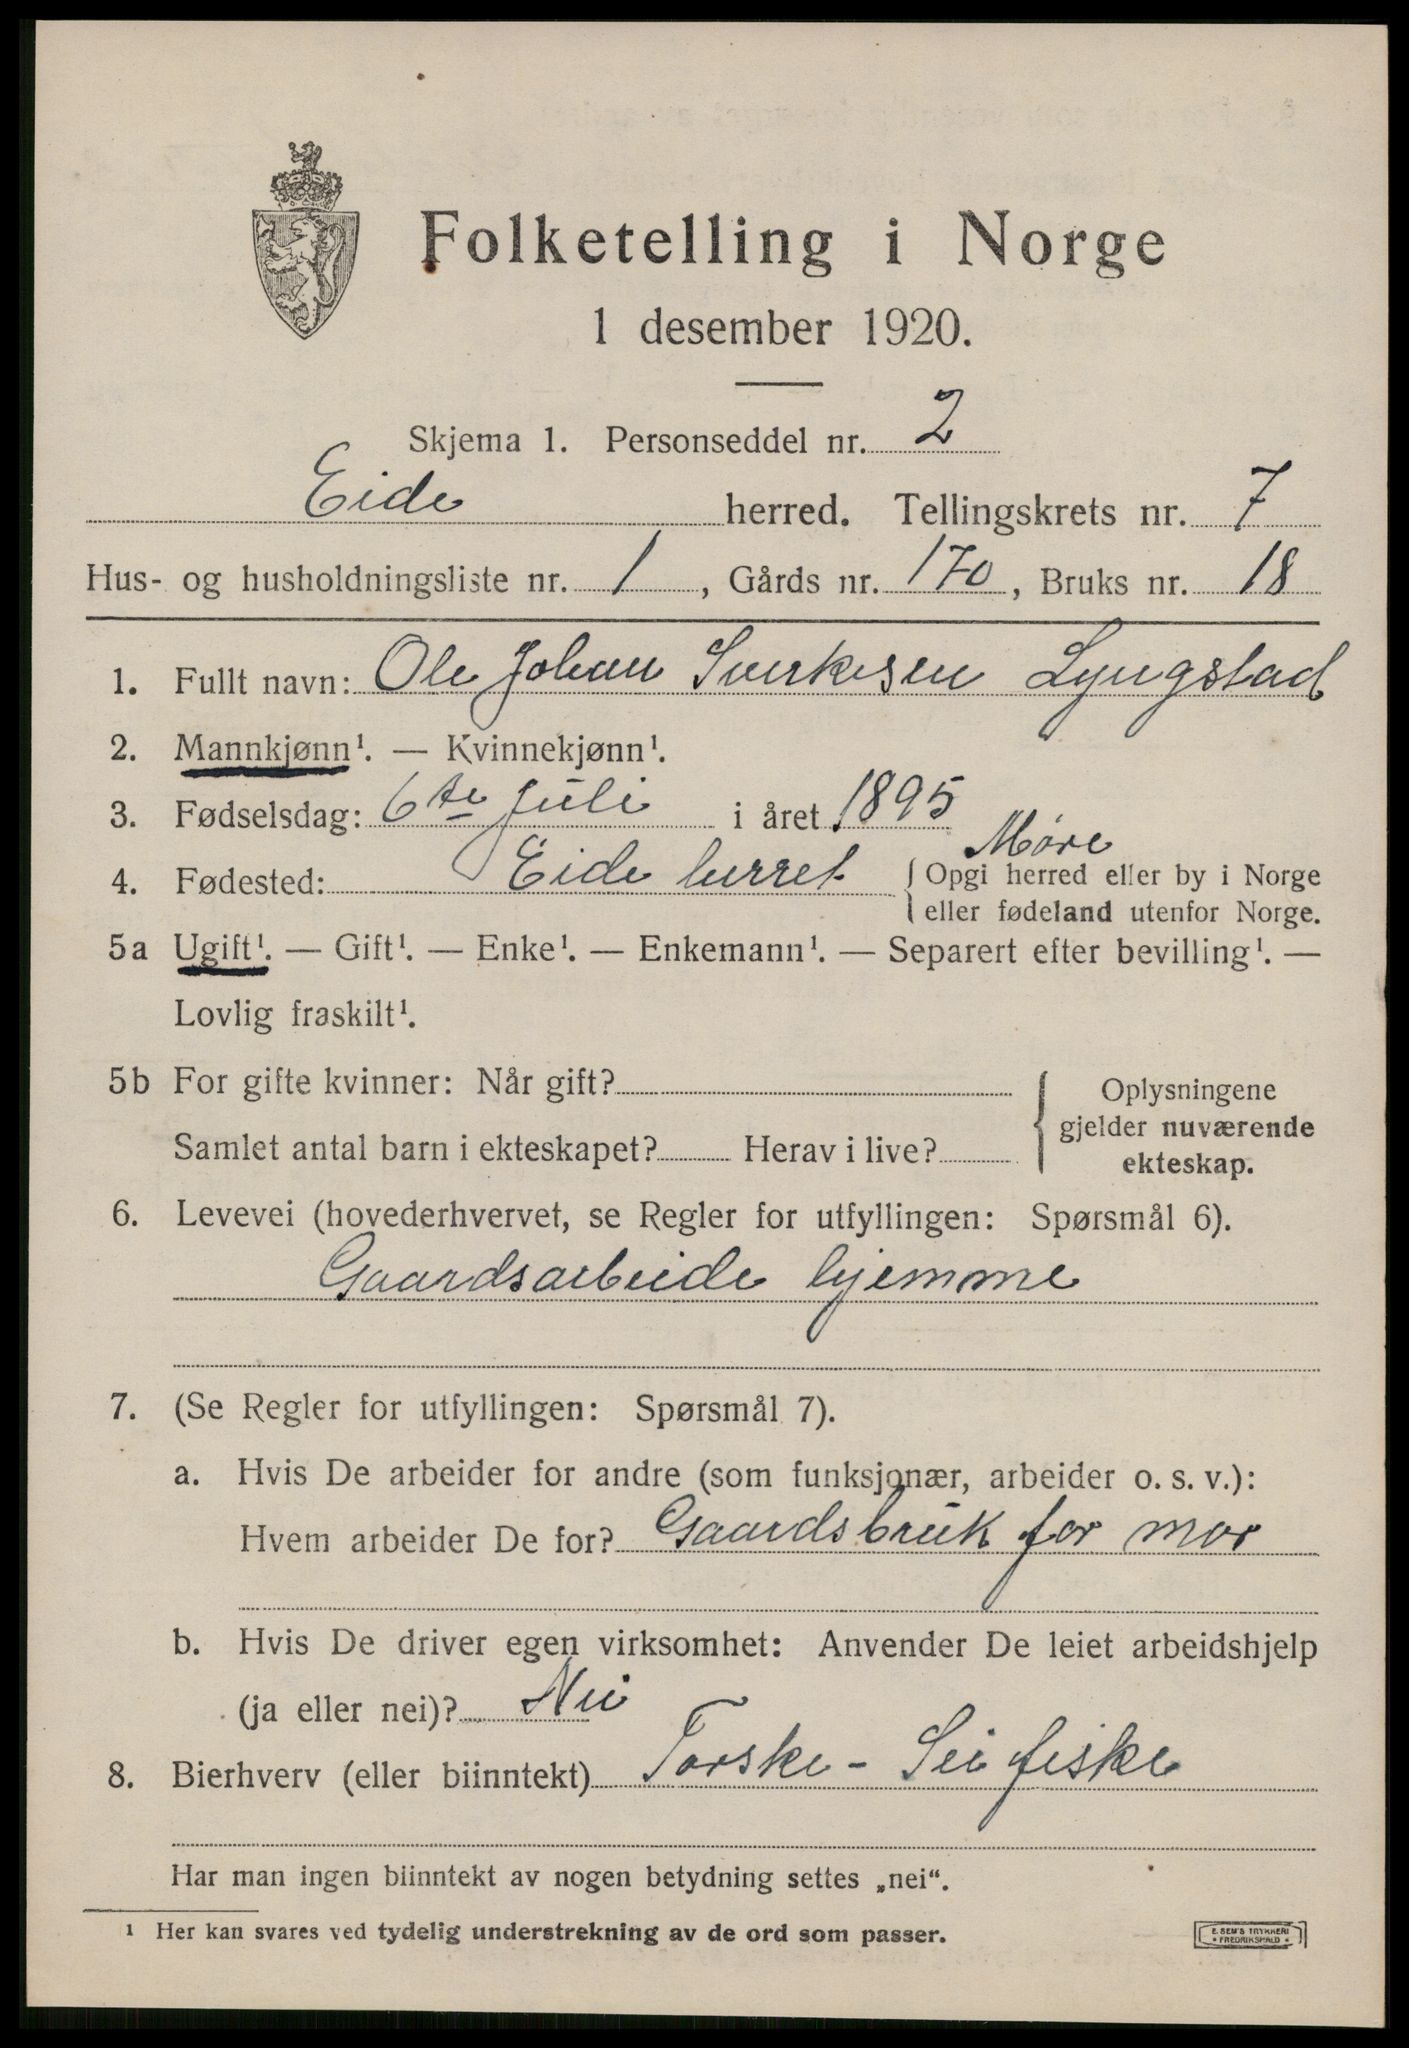 Folketelling i Norge
1 desember 1920.
Skjema 1. Personseddel nr. 2
Eide herred. Tellingskrets nr. 7
Hus- og husholdningsliste nr. 1, Gårds nr. 170, Bruks nr. 18
1. Fullt navn: Ole Johan Sverkesen Lyngstad
2. Mannkjønn¹. — Kvinnekjønn¹.
3. Fødselsdag: 6te Juli i året 1895
Møre
4. Fødested: Eide herret { Opgi herred eller by i Norge
eller fødeland utenfor Norge.
5a Ugift¹. — Gift¹. — Enke¹. — Enkemann¹. — Separert efter bevilling¹. —
Lovlig fraskilt¹.
5b For gifte kvinner: Når gift?
Samlet antal barn i ekteskapet? Herav i live?
{ Oplysningene
gjelder nuværende
ekteskap.
6. Levevei (hovederhvervet, se Regler for utfyllingen: Spørsmål 6).
Gaardsarbeide hjemme
7. (Se Regler for utfyllingen: Spørsmål 7).
a. Hvis De arbeider for andre (som funksjonær, arbeider o. s. v.):
Hvem arbeider De for? Gaardsbruk for mor
b. Hvis De driver egen virksomhet: Anvender De leiet arbeidshjelp
(ja eller nei)? Nei
8. Bierhverv (eller biinntekt) Torske - Sei fiske
Har man ingen biinntekt av nogen betydning settes „nei“.
¹ Her kan svares ved tydelig understrekning av de ord som passer.
E. SEM'S TRYKKERI
• FREDRIKSHALD •